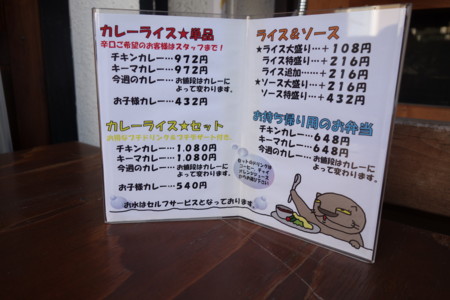 カレーライス★単品
辛口ご希望のお客様はスタッフまで！
チキンカレー…972円
キーマカレー…972円
今週のカレー…お値段はカレーに
よって変わります。
お子様カレー…432円
カレーライス★セット
チキンカレー…1,080円
キーマカレー…1,080円
今週のカレー…お値段はカレーに
よって変わります。
お子様カレー…540円
お水はセルフサービスとなっております。
ライス&ソース
★ライス大盛り…+108円
ライス特盛り…+216円
ライス追加……+216円
★ソース大盛り…+216円
ソース特盛り…+432円
お持ち帰り用のお弁当
チキンカレー…648円
キーマカレー…648円
今週のカレー…お値段はカレーに
よって変わります。
セットのドリンクは
コーヒー、チャイ
オレンジジュース